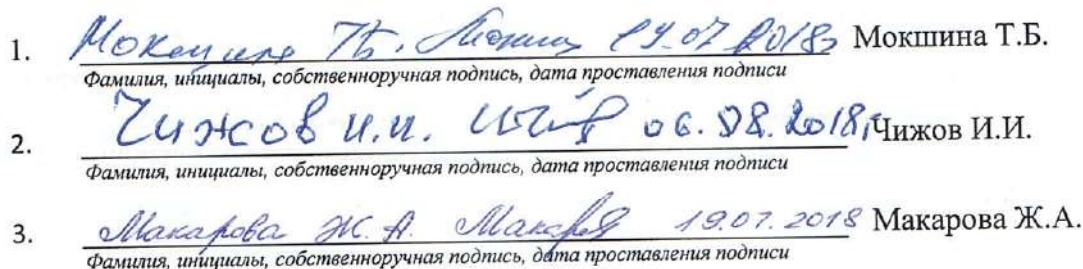 1. Мокшина Т.Б. 19.07.2018г Мокшина Т.Б.
Фамилия, инициалы, собственноручная подпись, дата проставления подписи
2. Чижов И.И. 06.08.2018г Чижов И.И.
Фамилия, инициалы, собственноручная подпись, дата проставления подписи
3. Макарова Ж.А. 19.07.2018 Макарова Ж.А.
Фамилия, инициалы, собственноручная подпись, дата проставления подписи